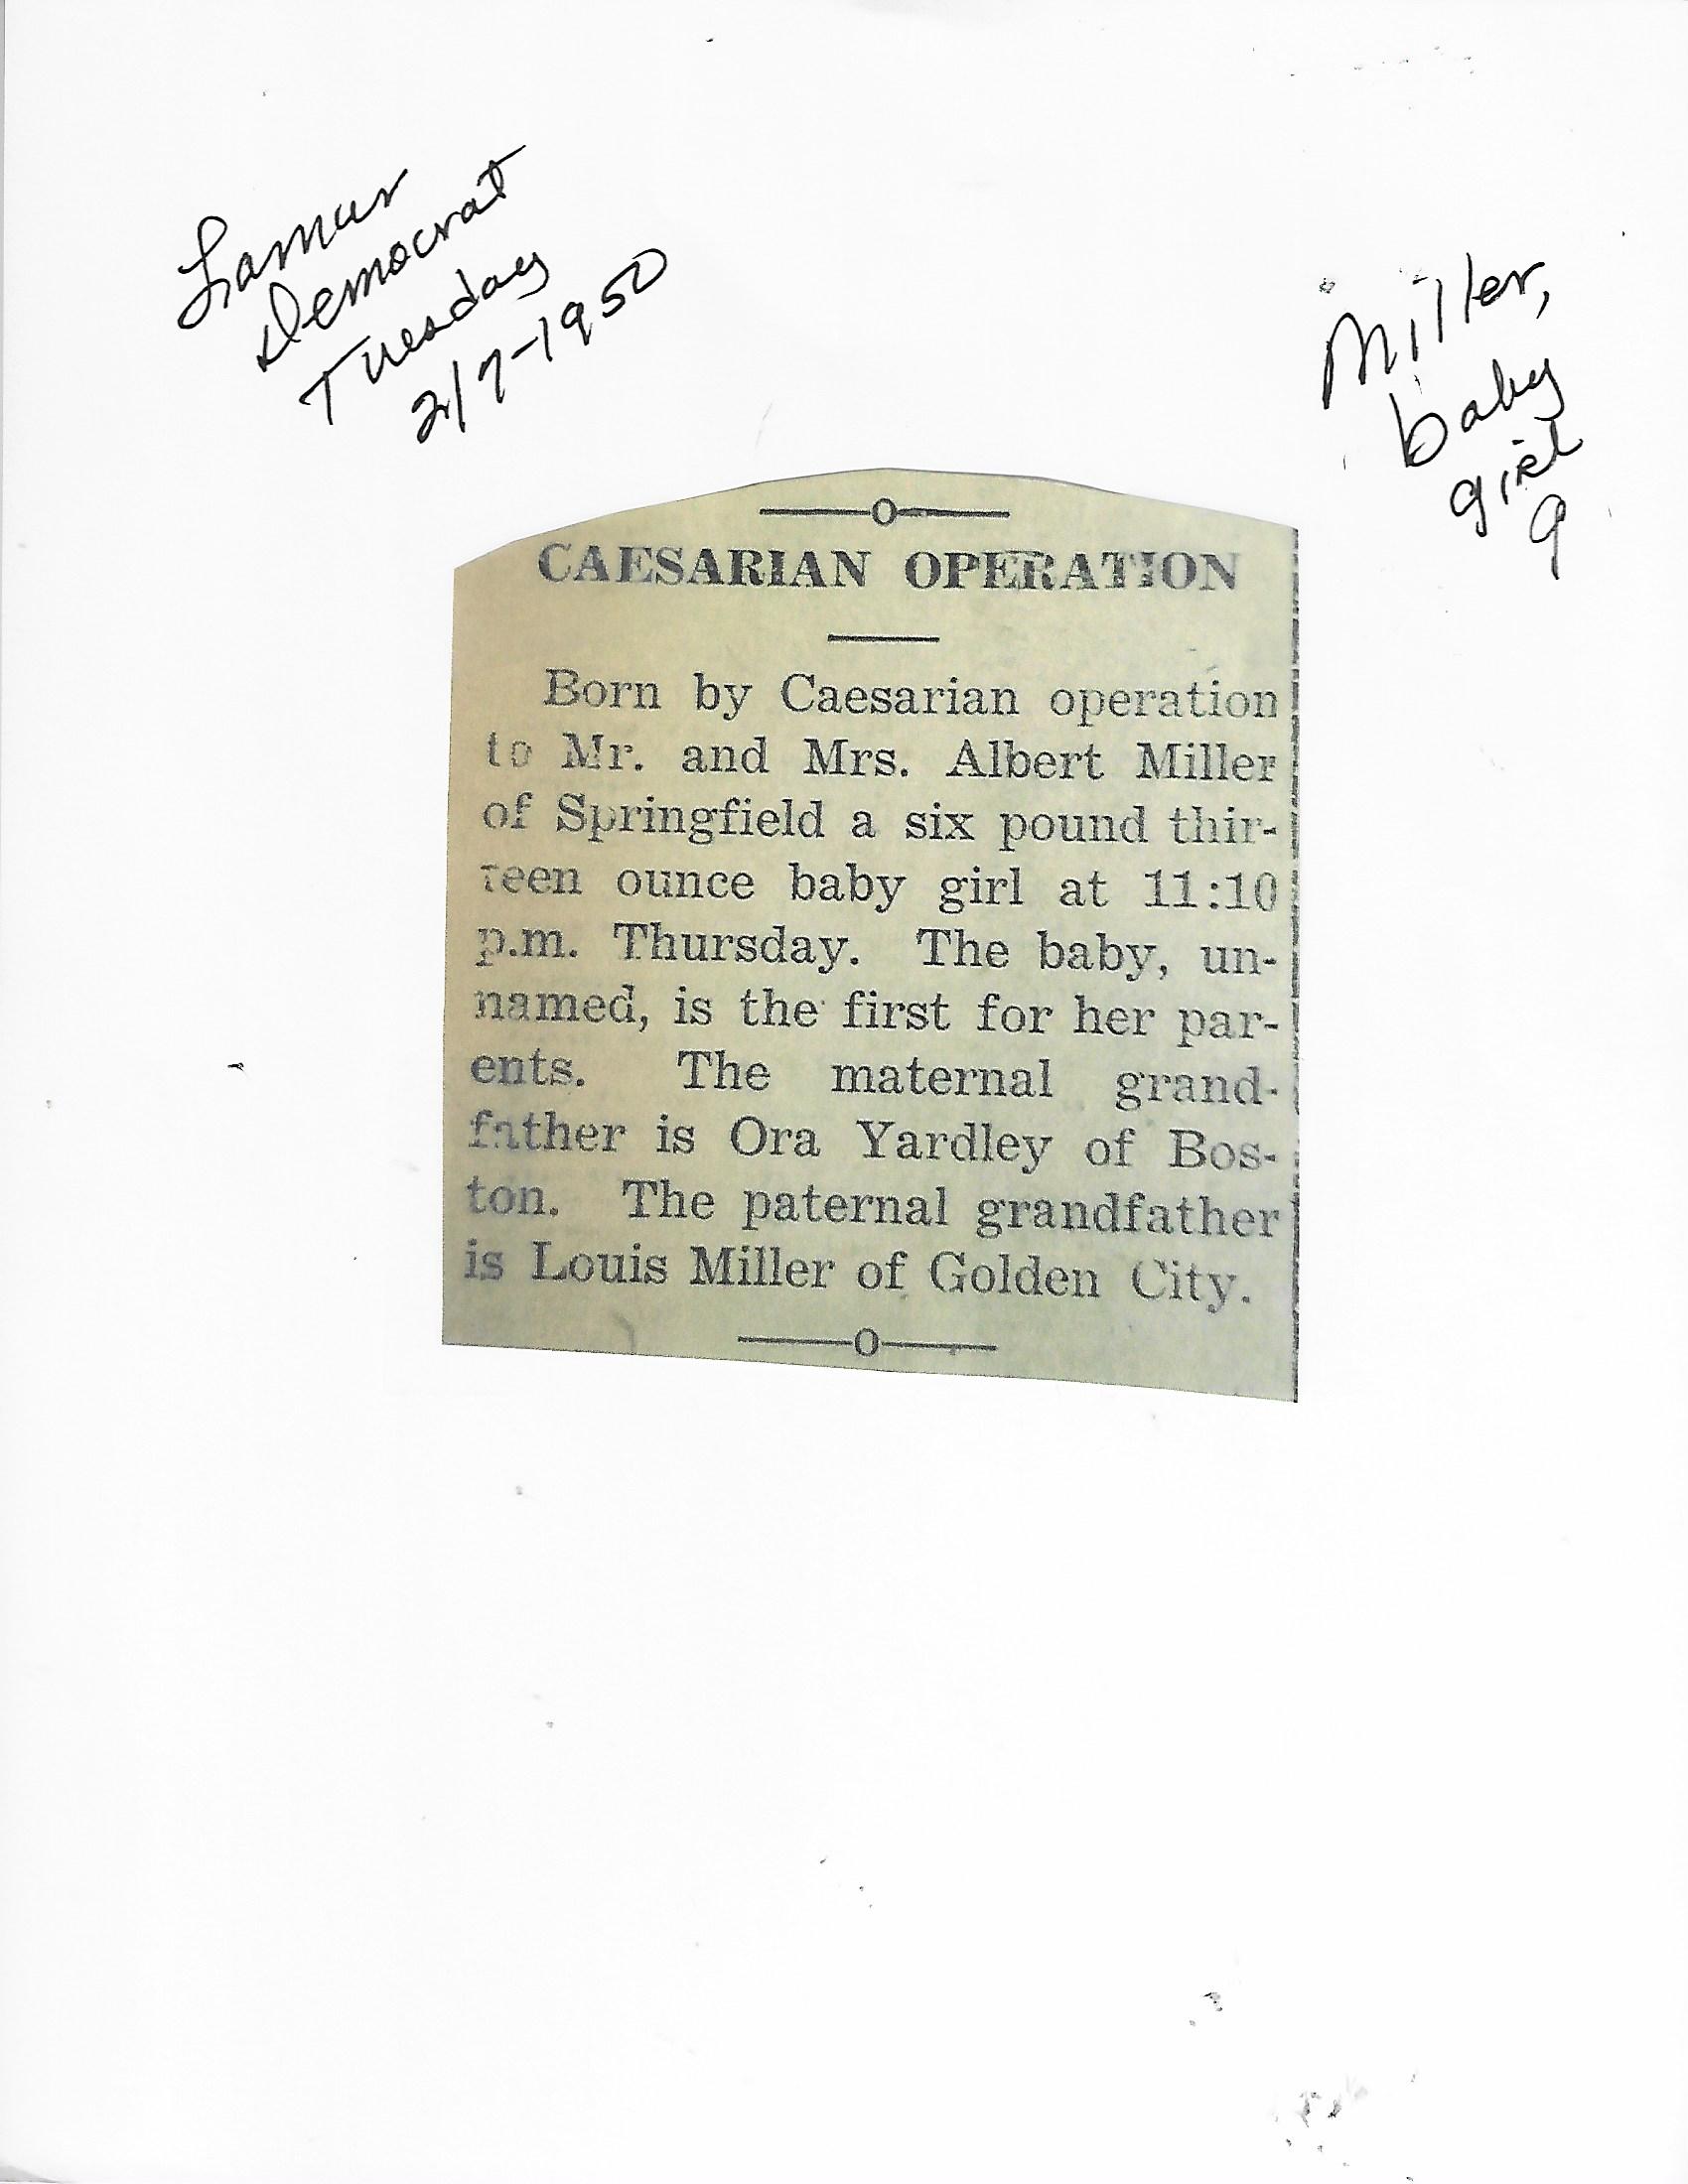 Lamar
Democrat
Tuesday
2/7-1950
Miller,
baby
girl
9
CAESARIAN OPERATION
Born by Caesarian operation
to Mr. and Mrs. Albert Miller
of Springfield a six pound thir-
teen ounce baby girl at 11:10
p.m. Thursday. The baby, un-
named, is the first for her par-
ents. The maternal grand-
father is Ora Yardley of Bos-
ton. The paternal grandfather
is Louis Miller of Golden City.